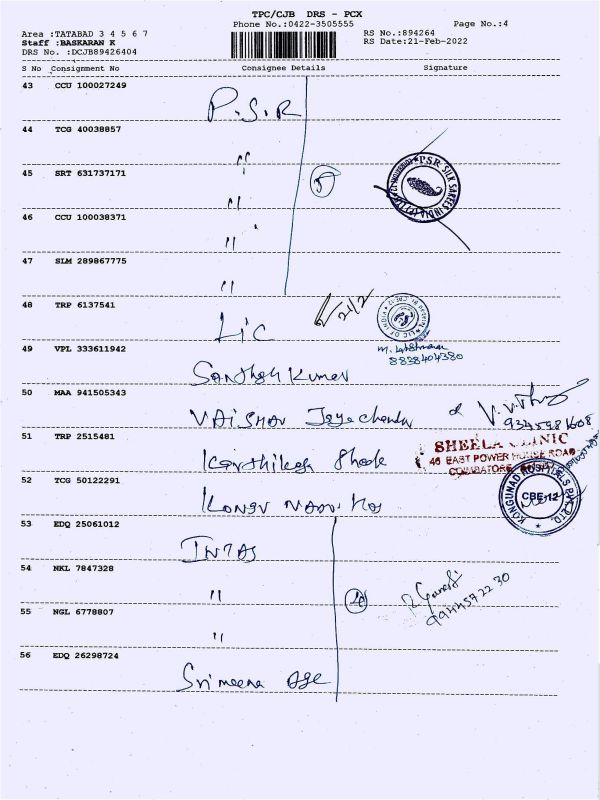 TPC/CJB DRS - PCX
Phone No.:0422-3505555 Page No.:4
Area :TATABAD 3 4 5 6 7 RS No.:894264
Staff :BASKARAN K RS Date:21-Feb-2022
DRS No. :DCJB89426404
S No Consignment No Consignee Details Signature
43 CCU 100027249
P.S.R
44 TCG 40038857
"
45 SRT 631737171
" 5 PSR SILK SAREES INDIA
46 CCU 100038371
"
47 SLM 289867775
"
48 TRP 6137541
Lic 21/2 LIC OF INDIA
49 VPL 333611942 8838404380
Santhosh Kumar
50 MAA 941505343
VAISHAV Jeyachandra
51 TRP 2515481
Karthikeh SHEELA CLINIC
46 EAST POWER HOUSE ROAD
COIMBATORE
52 TCG 50122291
KONGU KONGUNAD HOSPITALS PVT. LTD. CBE-12
53 EDQ 25061012
INTAS
54 NKL 7847328
"
55 NGL 6778807
"
56 EDQ 26298724
Sri meena Age